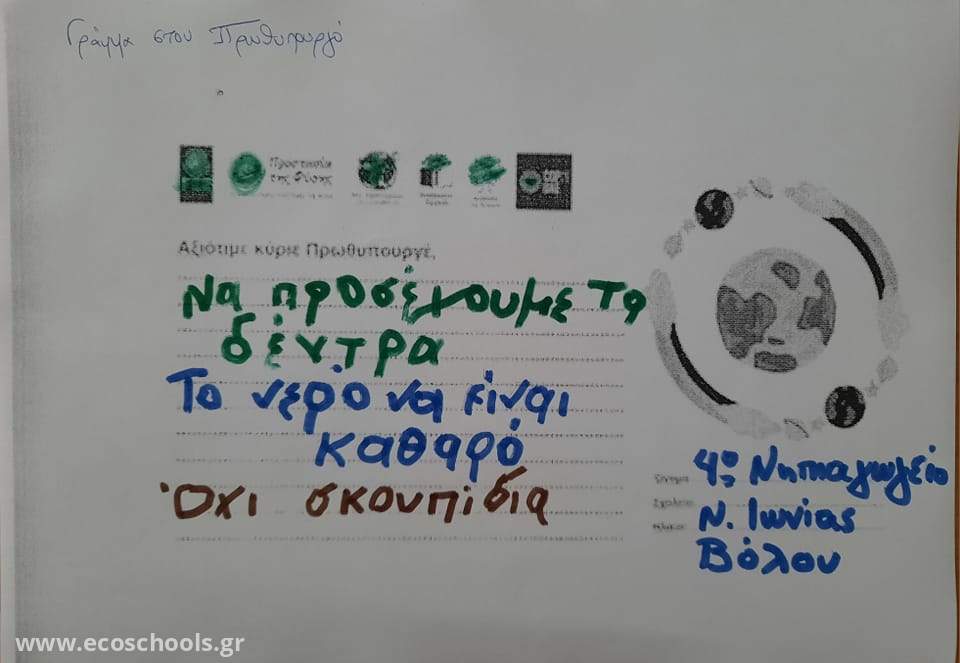 Γράμμα στον Πρωθυπουργό
Προστασία
της Φύσης
Αξιότιμε κύριε Πρωθυπουργέ,
Να προσέχουμε τα
δέντρα
Το νερό να είναι
καθαρό
Όχι σκουπίδια
Όνομα
Σχολείο
Ηλικία
4ο Νηπιαγωγείο
Ν. Ιωνίας
Βόλου
www.ecoschools.gr